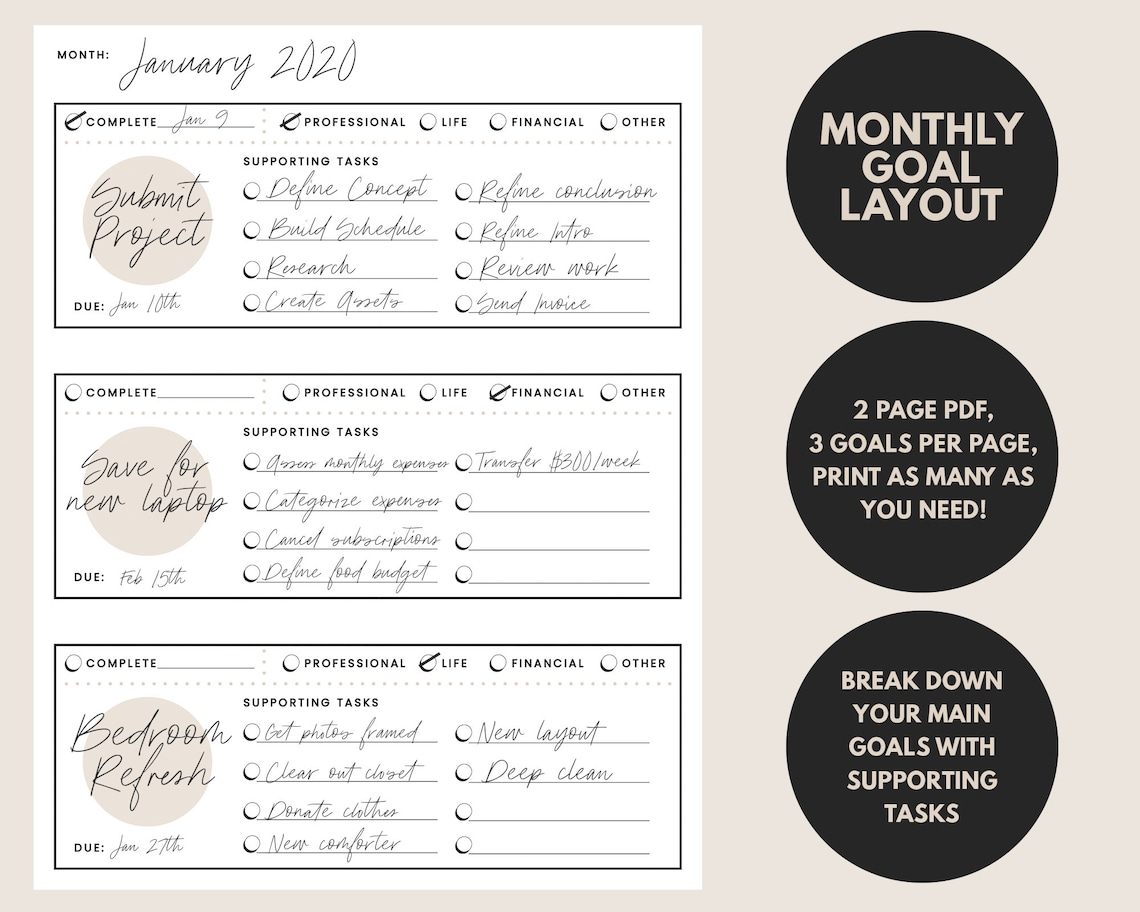 MONTH: January 2020
COMPLETE Jan 9 PROFESSIONAL LIFE FINANCIAL OTHER
Submit
Project
DUE: Jan 10th
SUPPORTING TASKS
Define Concept
Build Schedule
Research
Create Assets
Refine conclusion
Refine Intro
Review work
Send Invoice
COMPLETE PROFESSIONAL LIFE FINANCIAL OTHER
Save for
new laptop
DUE: Feb 15th
SUPPORTING TASKS
Assess monthly expenses
Categorize expenses
Cancel subscriptions
Define food budget
Transfer $300/week
COMPLETE PROFESSIONAL LIFE FINANCIAL OTHER
Bedroom
Refresh
DUE: Jan 27th
SUPPORTING TASKS
Get photos framed
Clear out closet
Donate clothes
New comforter
New layout
Deep clean
MONTHLY
GOAL
LAYOUT
2 PAGE PDF,
3 GOALS PER PAGE,
PRINT AS MANY AS
YOU NEED!
BREAK DOWN
YOUR MAIN
GOALS WITH
SUPPORTING
TASKS